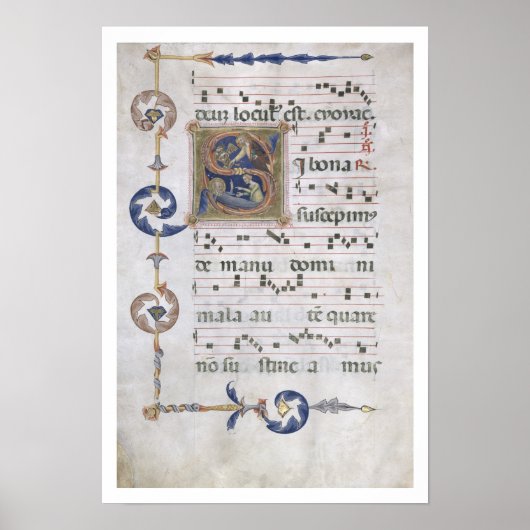 deum locutꝰ est. evovae
SI bona R.
suscepimꝰ
de manu domi ni
mala au tē quare
nō su stine a mus